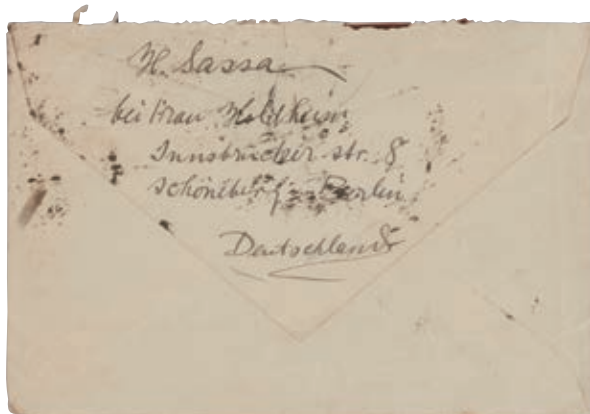 H. Sassa
bei Frau Holdheim
Innsbrucker str. 8
Schöneberg Berlin
Deutschland